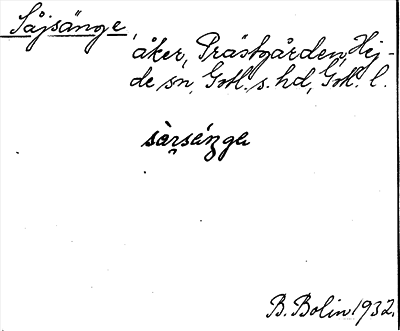 Såjsänge,
åker, Prästgården, Hej-
de sn, Gotl. s. hd, Gotl. l.
B. Bolin 1932.